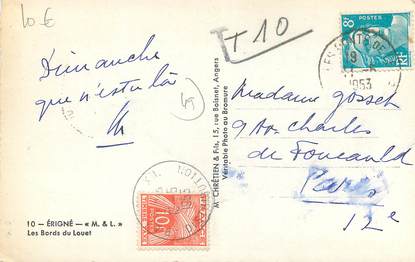 10 €
T 10
8F
POSTES
RF
LES PONTS DE
19
1953
Dimanche
que n'es tu là
49
Madame Gosset
9 Av. Charles
de Foucauld
Paris
12e
M. CHRÉTIEN & Fils, 15, rue Boisnet, Angers
Véritable Photo au Bromure
10 - ÉRIGNÉ - « M. & L. »
Les Bords du Louet
10F